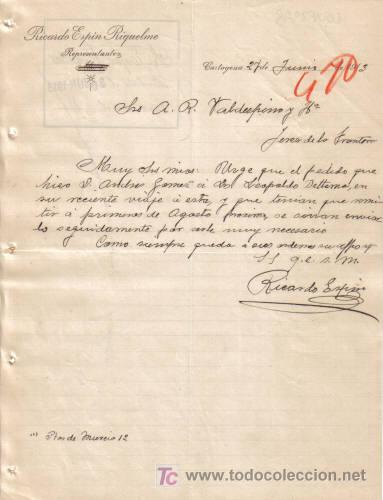 Ricardo Espin Riquelme
Representante
Cartagena 27 de Junio 1913
Sres A. R. Valdespino y Hº
Jerez de la Frontera
Muy Srs mios: Urge que el pedido que
hizo D. Andres Gomez á Don Leopoldo
su reciente viaje á esta, y que tenian que remi
tir á primeros de Agosto proximo se sirvan enviar
lo seguidamente por serle muy necesario
Como siempre queda á sus ordenes su affmo y
S S q. e. s. m.
Ricardo Espin
Plas de Murcia 12
TC
todocoleccion
www.todocoleccion.net